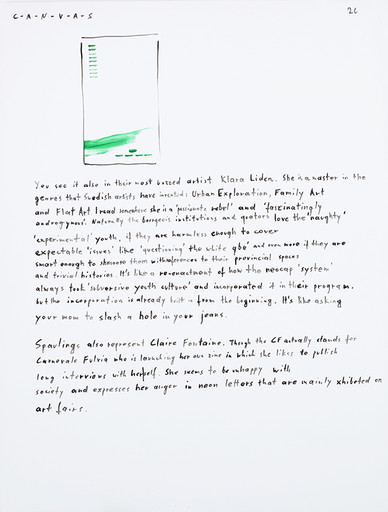 C-A-N-V-A-S
2c
You see it also in their most buzzed artist Klara Liden. She is a master in the
genres that Swedish artists have invented: Urban Exploration, Family Art
and Flat Art. I read somewhere she is a 'passionate rebel' and 'fascinatingly
androgynous'. Naturally the bourgeois institutions and quotors love the 'naughty'
'experimental' youth, if they are harmless enough to cover
expectable 'issues' like 'questioning' the white qbe' and even more if they are
smart enough to them with references to their provincial spaces
and trivial histories. It's like a re-enactment of how the neocap 'system'
always took 'subversive youth culture' and incorporated it in their program,
but the incorporation is already built in from the beginning. It's like asking
your mom to slash a hole in your jeans.
Spaulings also represent Claire Fontaine. Though the CF actually stands for
Carnevale Fulvia who is launching her own zine in which she likes to publish
long interviews with herself. She seems to be unhappy with
society and expresses her anger in neon letters that are mainly xhibited on
art fairs.